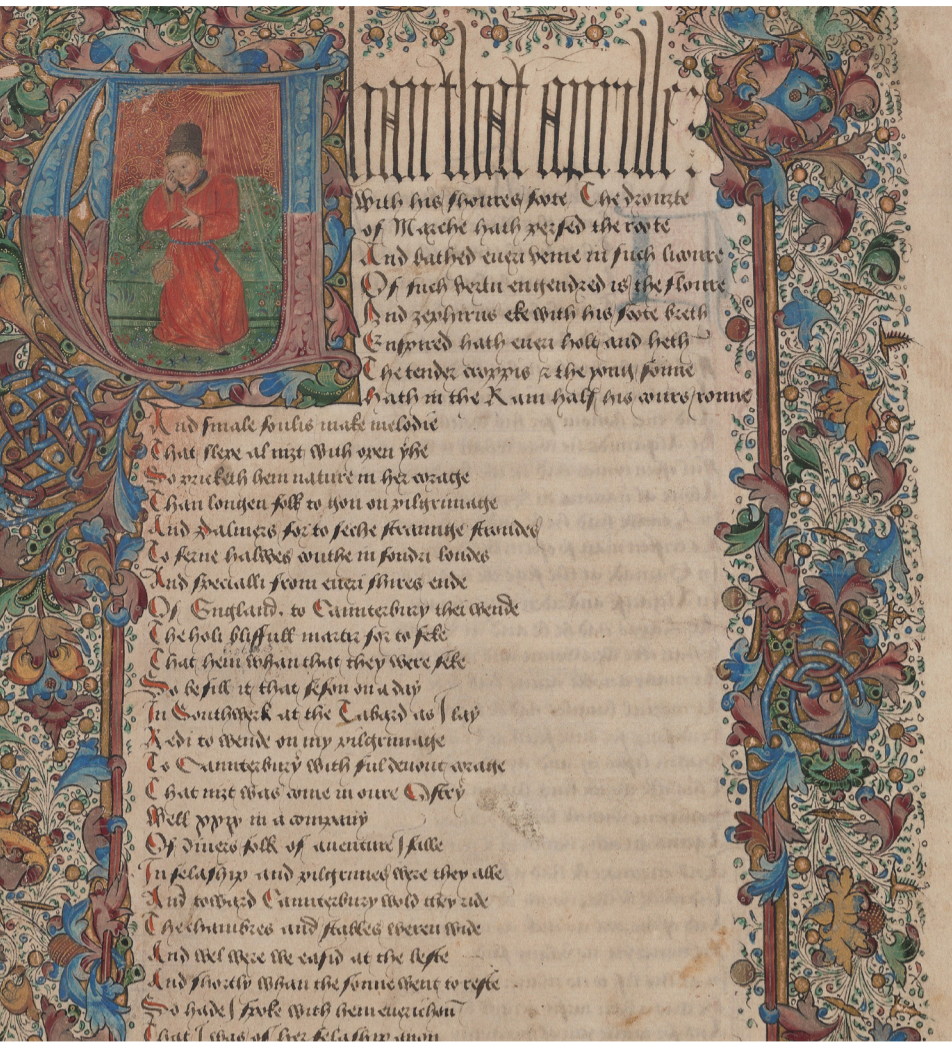 Whan that aprille
with his shoures soote The drouzte
of Marche hath persed the roote
And bathed eueri veine in such licoure
Of such vertu engendred is the floure
And zephirus eke with his soote breth
Enspired hath eueri holt and heth
The tender croppis & the yong sonne
Hath in the Ram half his cours ronne
And smale foulis make melodie
That slepe al nizt with open yhe
So pricketh hem nature in her corage
Than longen folk to gon on pilgrimage
And Palmers for to seche straunge strondes
To ferne halwes couthe in sondri londes
And specialli from eueri shires ende
Of England, to Caunterbury thei wende
The holi blissfull martir for to seke
That hem whan that they were seke
So befill it that seson on a day
In Southwerk at the Tabard as I lay
Redi to wende on my pilgrimage
To Caunterbury with ful deuout corage
That nizt was come in oure Ostry
Well xxix in a company
Of diuers folk of auenture I falle
In felaship and pilgrimes were they alle
And toward Caunterbury wold they ride
The chambres and stables weren wide
And wel were we easid at the beste
And shortly whan the sonne went to reste
So hade I spoke with hem euerichon
That I was of her felaship anon